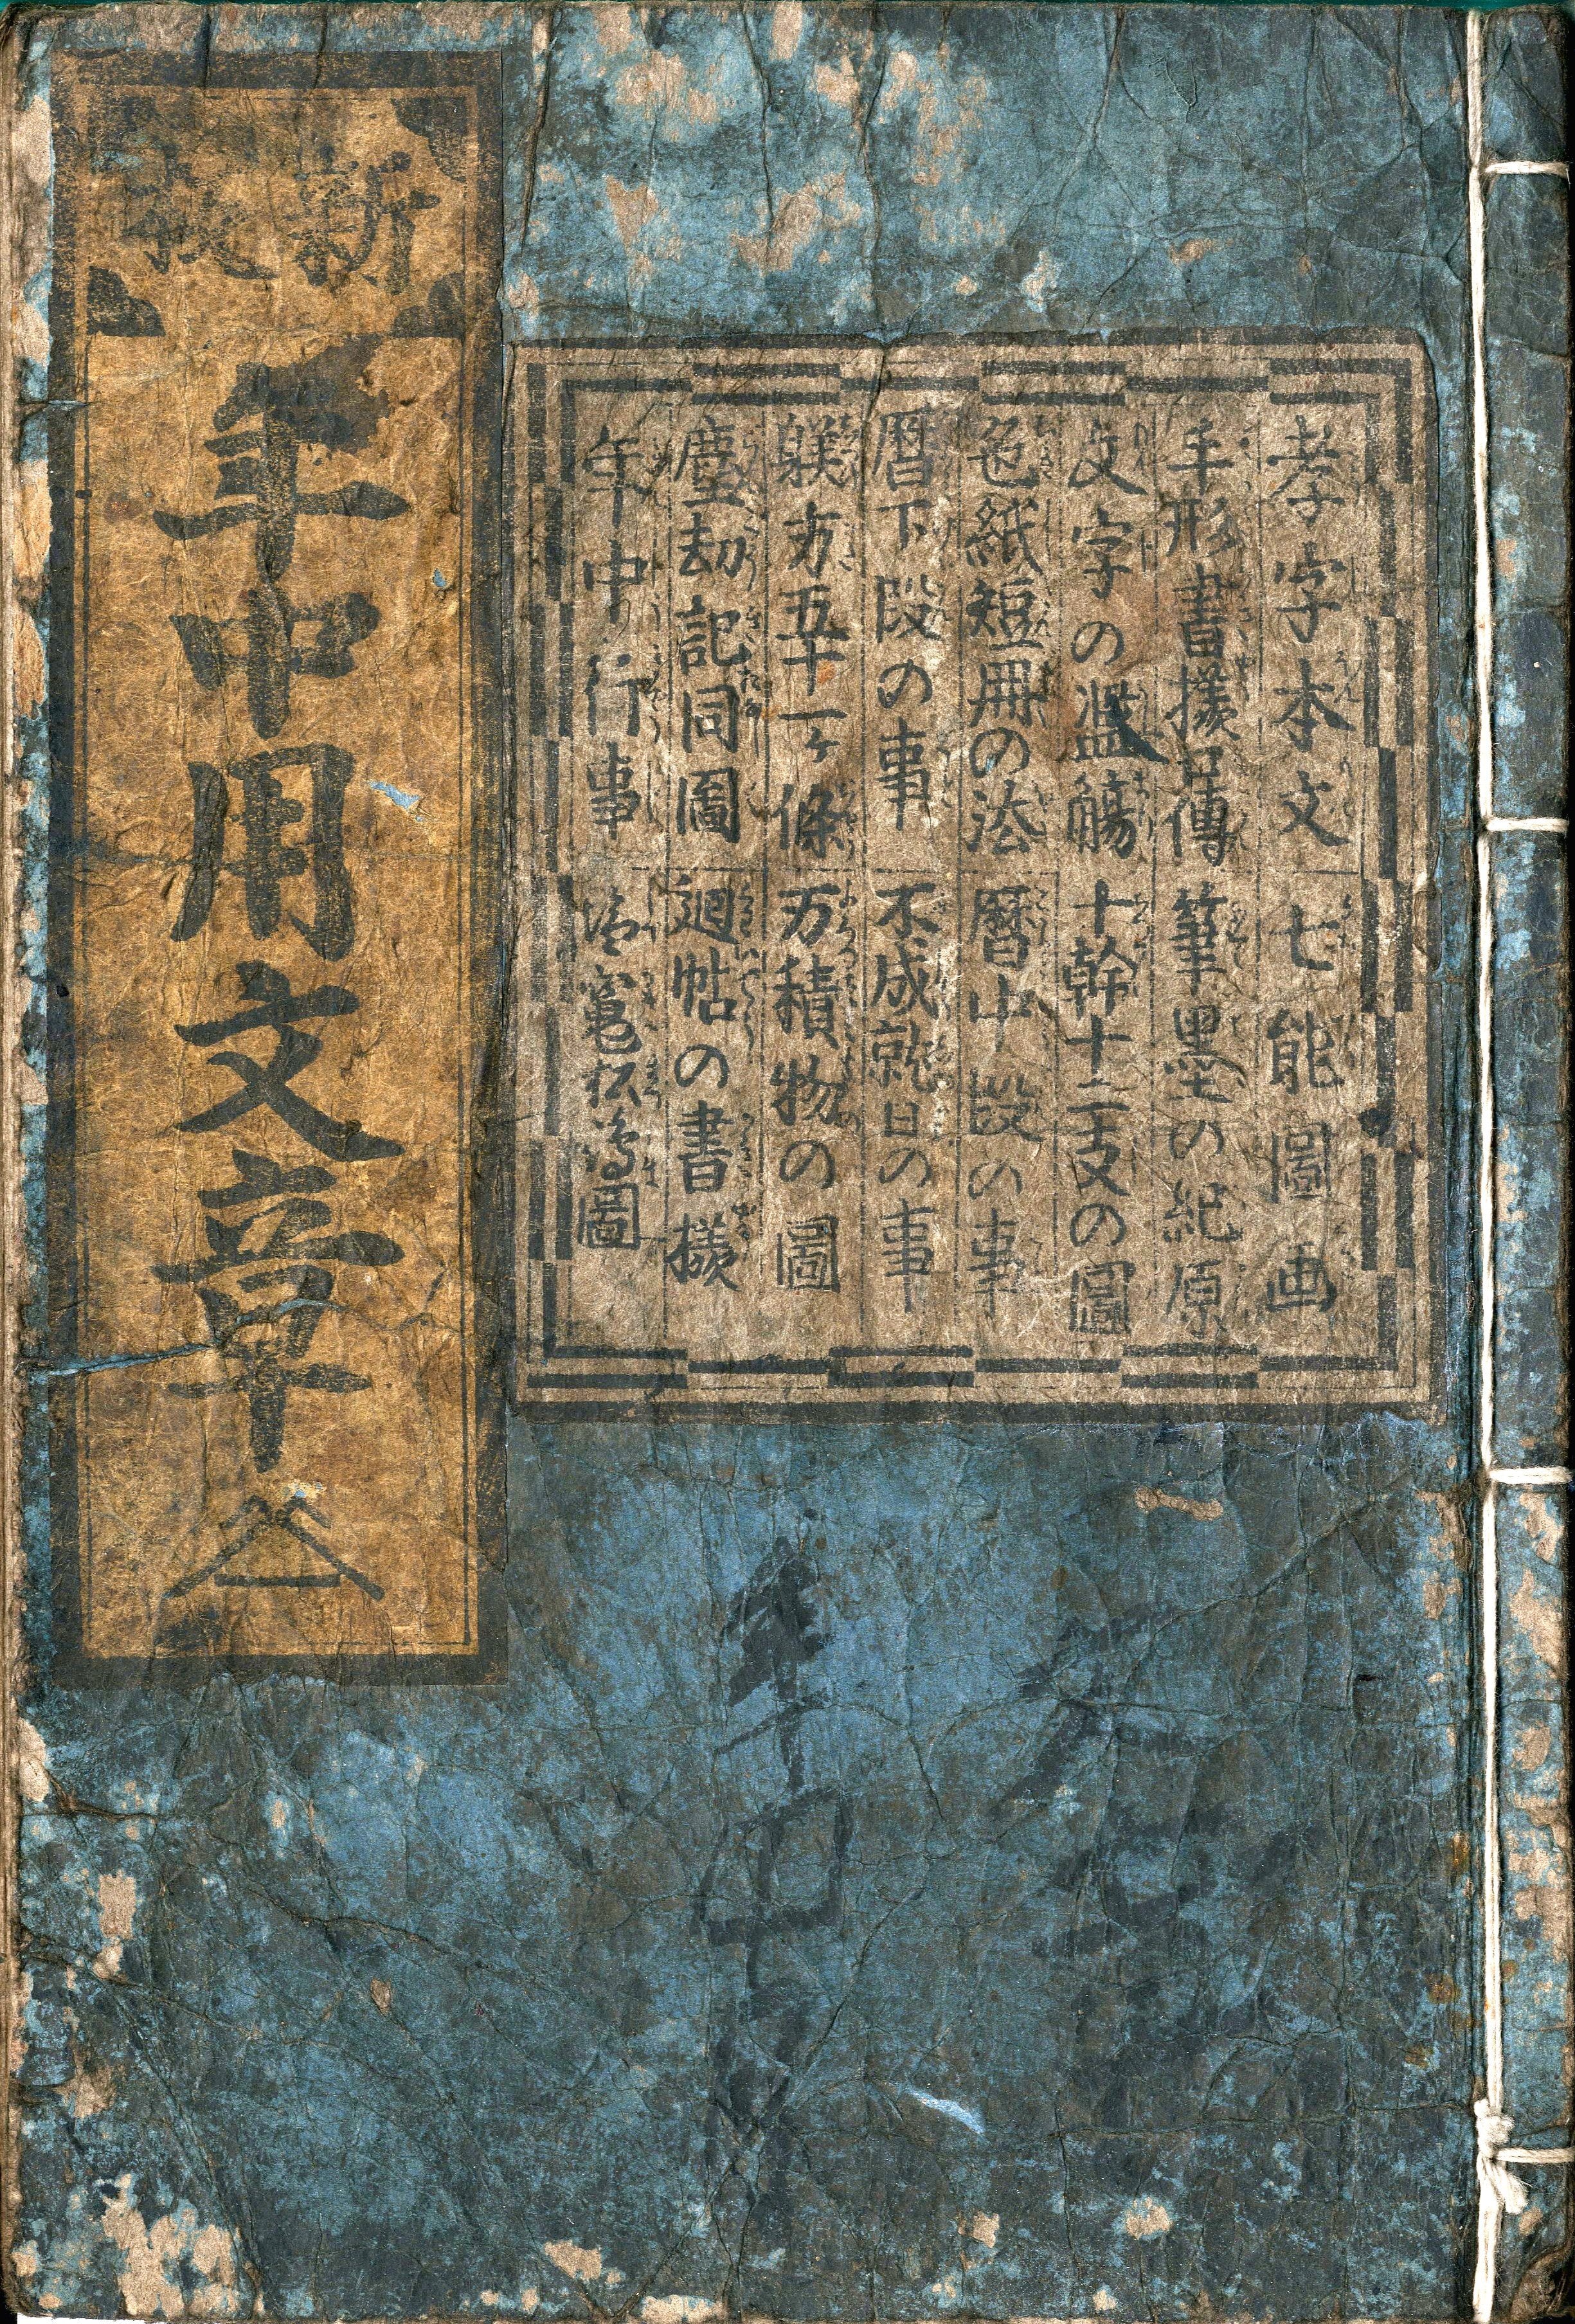 孝字本文 七能圖画
手形書樣口傳 筆墨の紀原
文字の濫觴 十幹十二支の圖
色紙短冊の法 暦中段の事
暦下段の事 不成就日の事
躾方五十一ヶ條 万積物の圖
塵劫記同圖 廻帖の書樣
年中行事 塩竃松嶋圖
新板
年中用文章 全